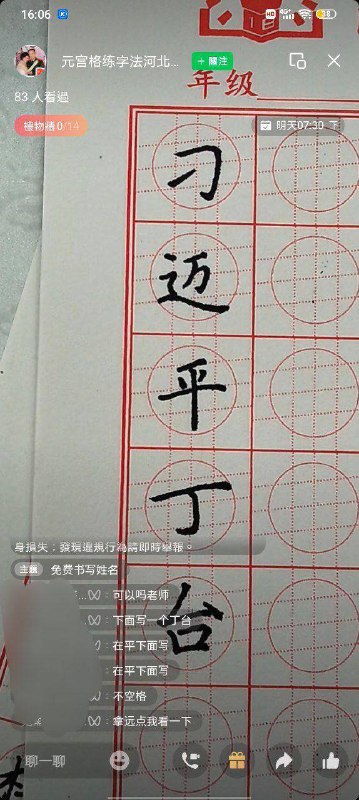 16:06
元宫格练字法河北...
+ 關注
83 人看過
年级
禮物牆 0/14
明天07:30 下
刁
迈
平
丁
台
身損失；發現違規行為請即時舉報。
主題 免费书写姓名
：可以吗老师
：下面写一个丁台
：在平下面写
：在平下面写
：不空格
：拿远点我看一下
聊一聊